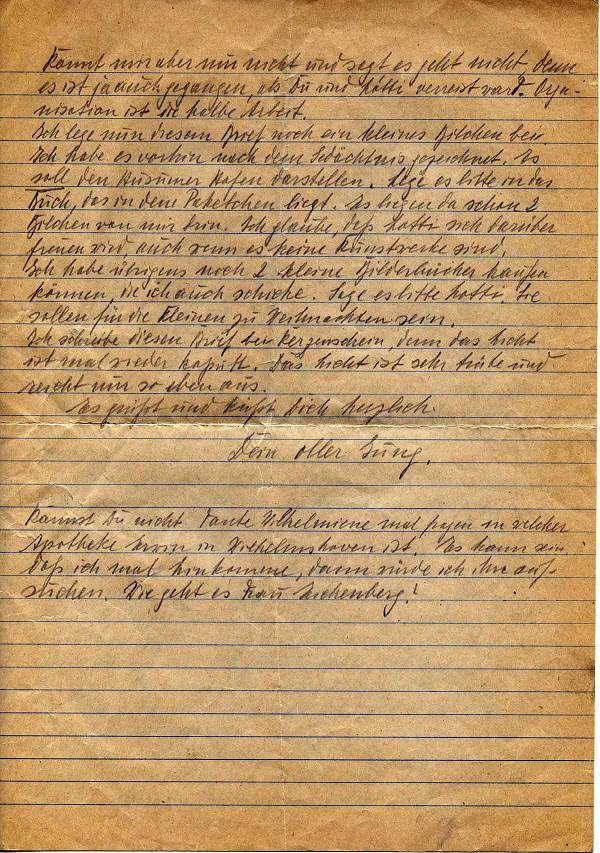 Kommt mir aber nun nicht und sagt es geht nicht, denn
es ist ja auch gegangen, als Du und Hotti verreist war't. Orga-
nisation ist die halbe Arbeit.
Ich lege nun diesem Brief noch ein kleines Bildchen bei.
Ich habe es vorhin nach dem Gedächtnis gezeichnet. Es
soll den Husumer Hafen darstellen. Lege es bitte in das
Buch, das in dem Paketchen liegt. Es liegen da schon 2
Bildchen von mir drin. Ich glaube, daß Hotti sich darüber
freuen wird, auch wenn es keine Kunstwerke sind.
Ich habe übrigens noch 2 kleine Bilderbücher kaufen
können, die ich auch schicke. Sage es bitte Hotti. Sie
sollen für die Kleinen zu Weihnachten sein.
Ich schreibe diesen Brief bei Kerzenschein, denn das Licht
ist mal wieder kaputt. Das Licht ist sehr trübe und
reicht nur so eben aus.
Es grüßt und küßt Dich herzlich
Dein oller Jung.
Kannst Du nicht Tante Wilhelmiene mal fragen in welcher
Apotheke Erwin in Wilhelmshaven ist. Es kann sein,
daß ich mal hinkomme, dann würde ich ihn auf-
suchen. Wie geht es Frau